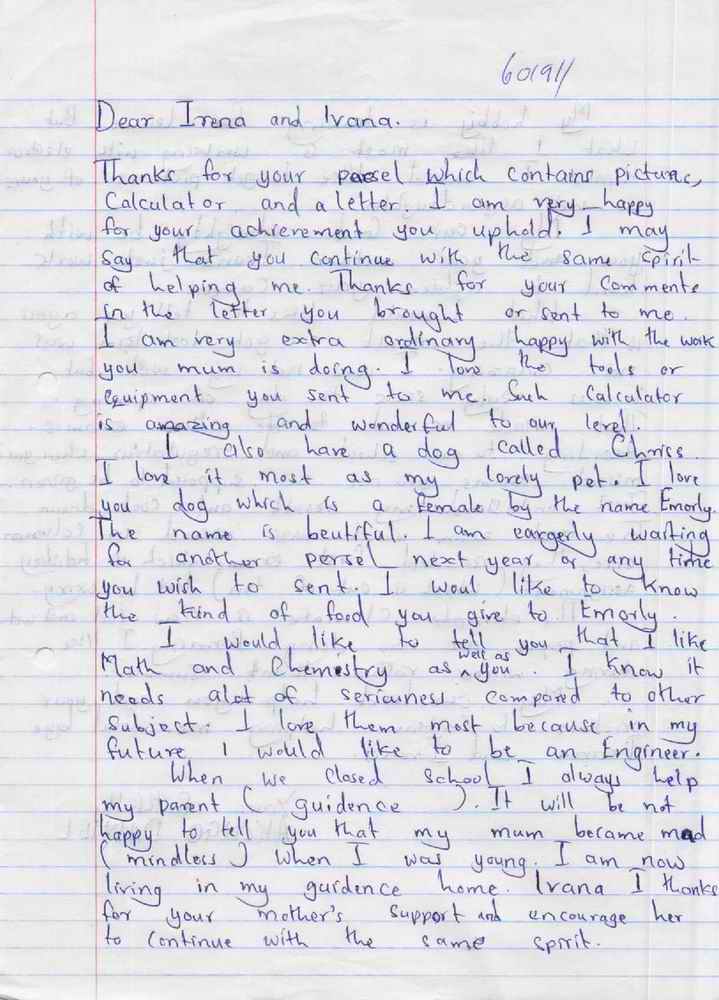 601911
Dear Irena and Ivana.
Thanks for your parsel which contains pictures,
Calculator and a letter I am very happy
for your achievement you uphold. I may
say that you continue with the same spirit
of helping me. Thanks for your Comments
in the letter you brought or sent to me.
I am very extra ordinary happy with the work
you mum is doing. I love the tools or
equipment you sent to me. Such Calculator
is amazing and wonderful to our level.
I also have a dog called Chriss.
I love it most as my lovely pet. I love
you dog which is a female by the name Emorly.
The name is beutiful. I am eargerly waiting
for another persel next year or any time
you wish to sent. I woul like to know
the kind of food you give to Emorly.
I would like to tell you that I like
Math and Chemistry as well as you. I know it
needs alot of seriousness compared to other
subject. I love them most because in my
future I would like to be an Engineer.
When we closed school I always help
my parent (guidence ). It will be not
happy to tell you that my mum became mad
(mindless) when I was young. I am now
living in my guidence home. Ivana I thanks
for your mother's support and encourage her
to continue with the same spirit.